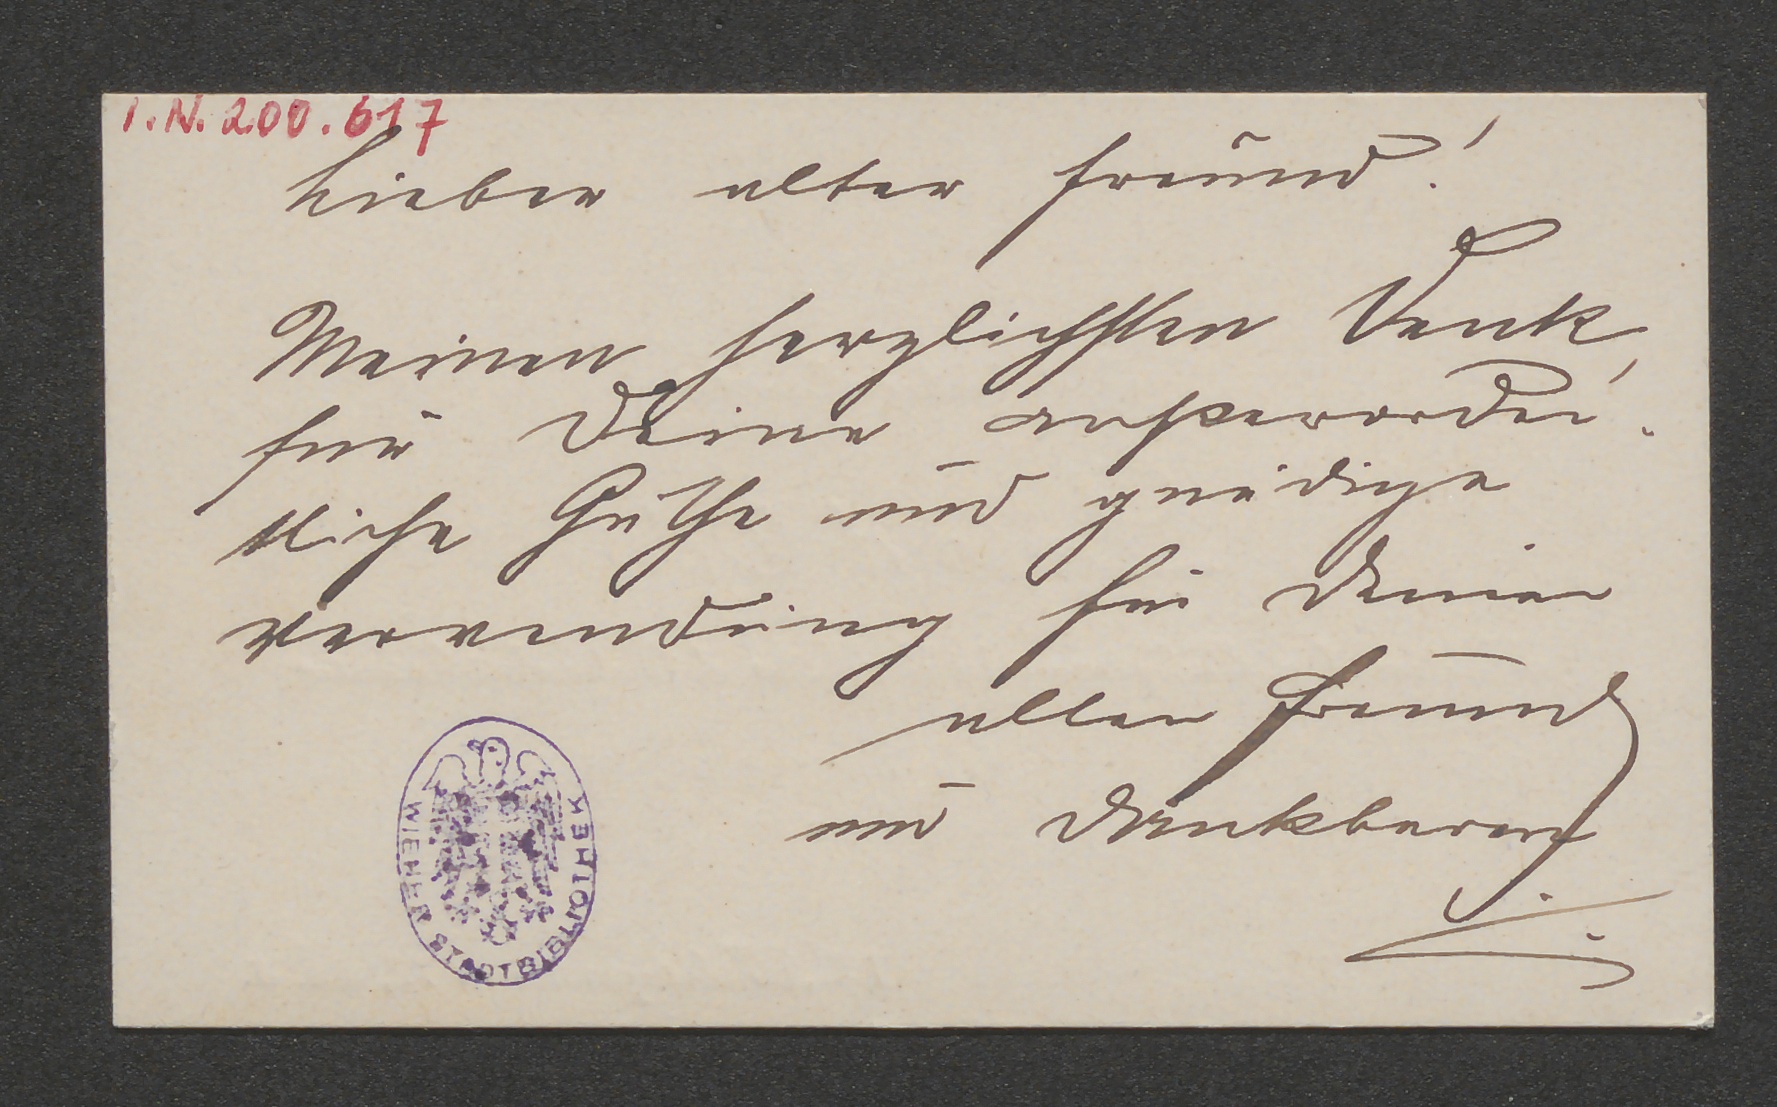 I.N. 200.617
Lieber alter Freund!
Meinen herzlichsten Dank
für Deine außerorden-
tliche Güthe und gnädige
Verwendung für Deinen
alten Freund
und dankbaren
WIENER STADTBIBLIOTHEK